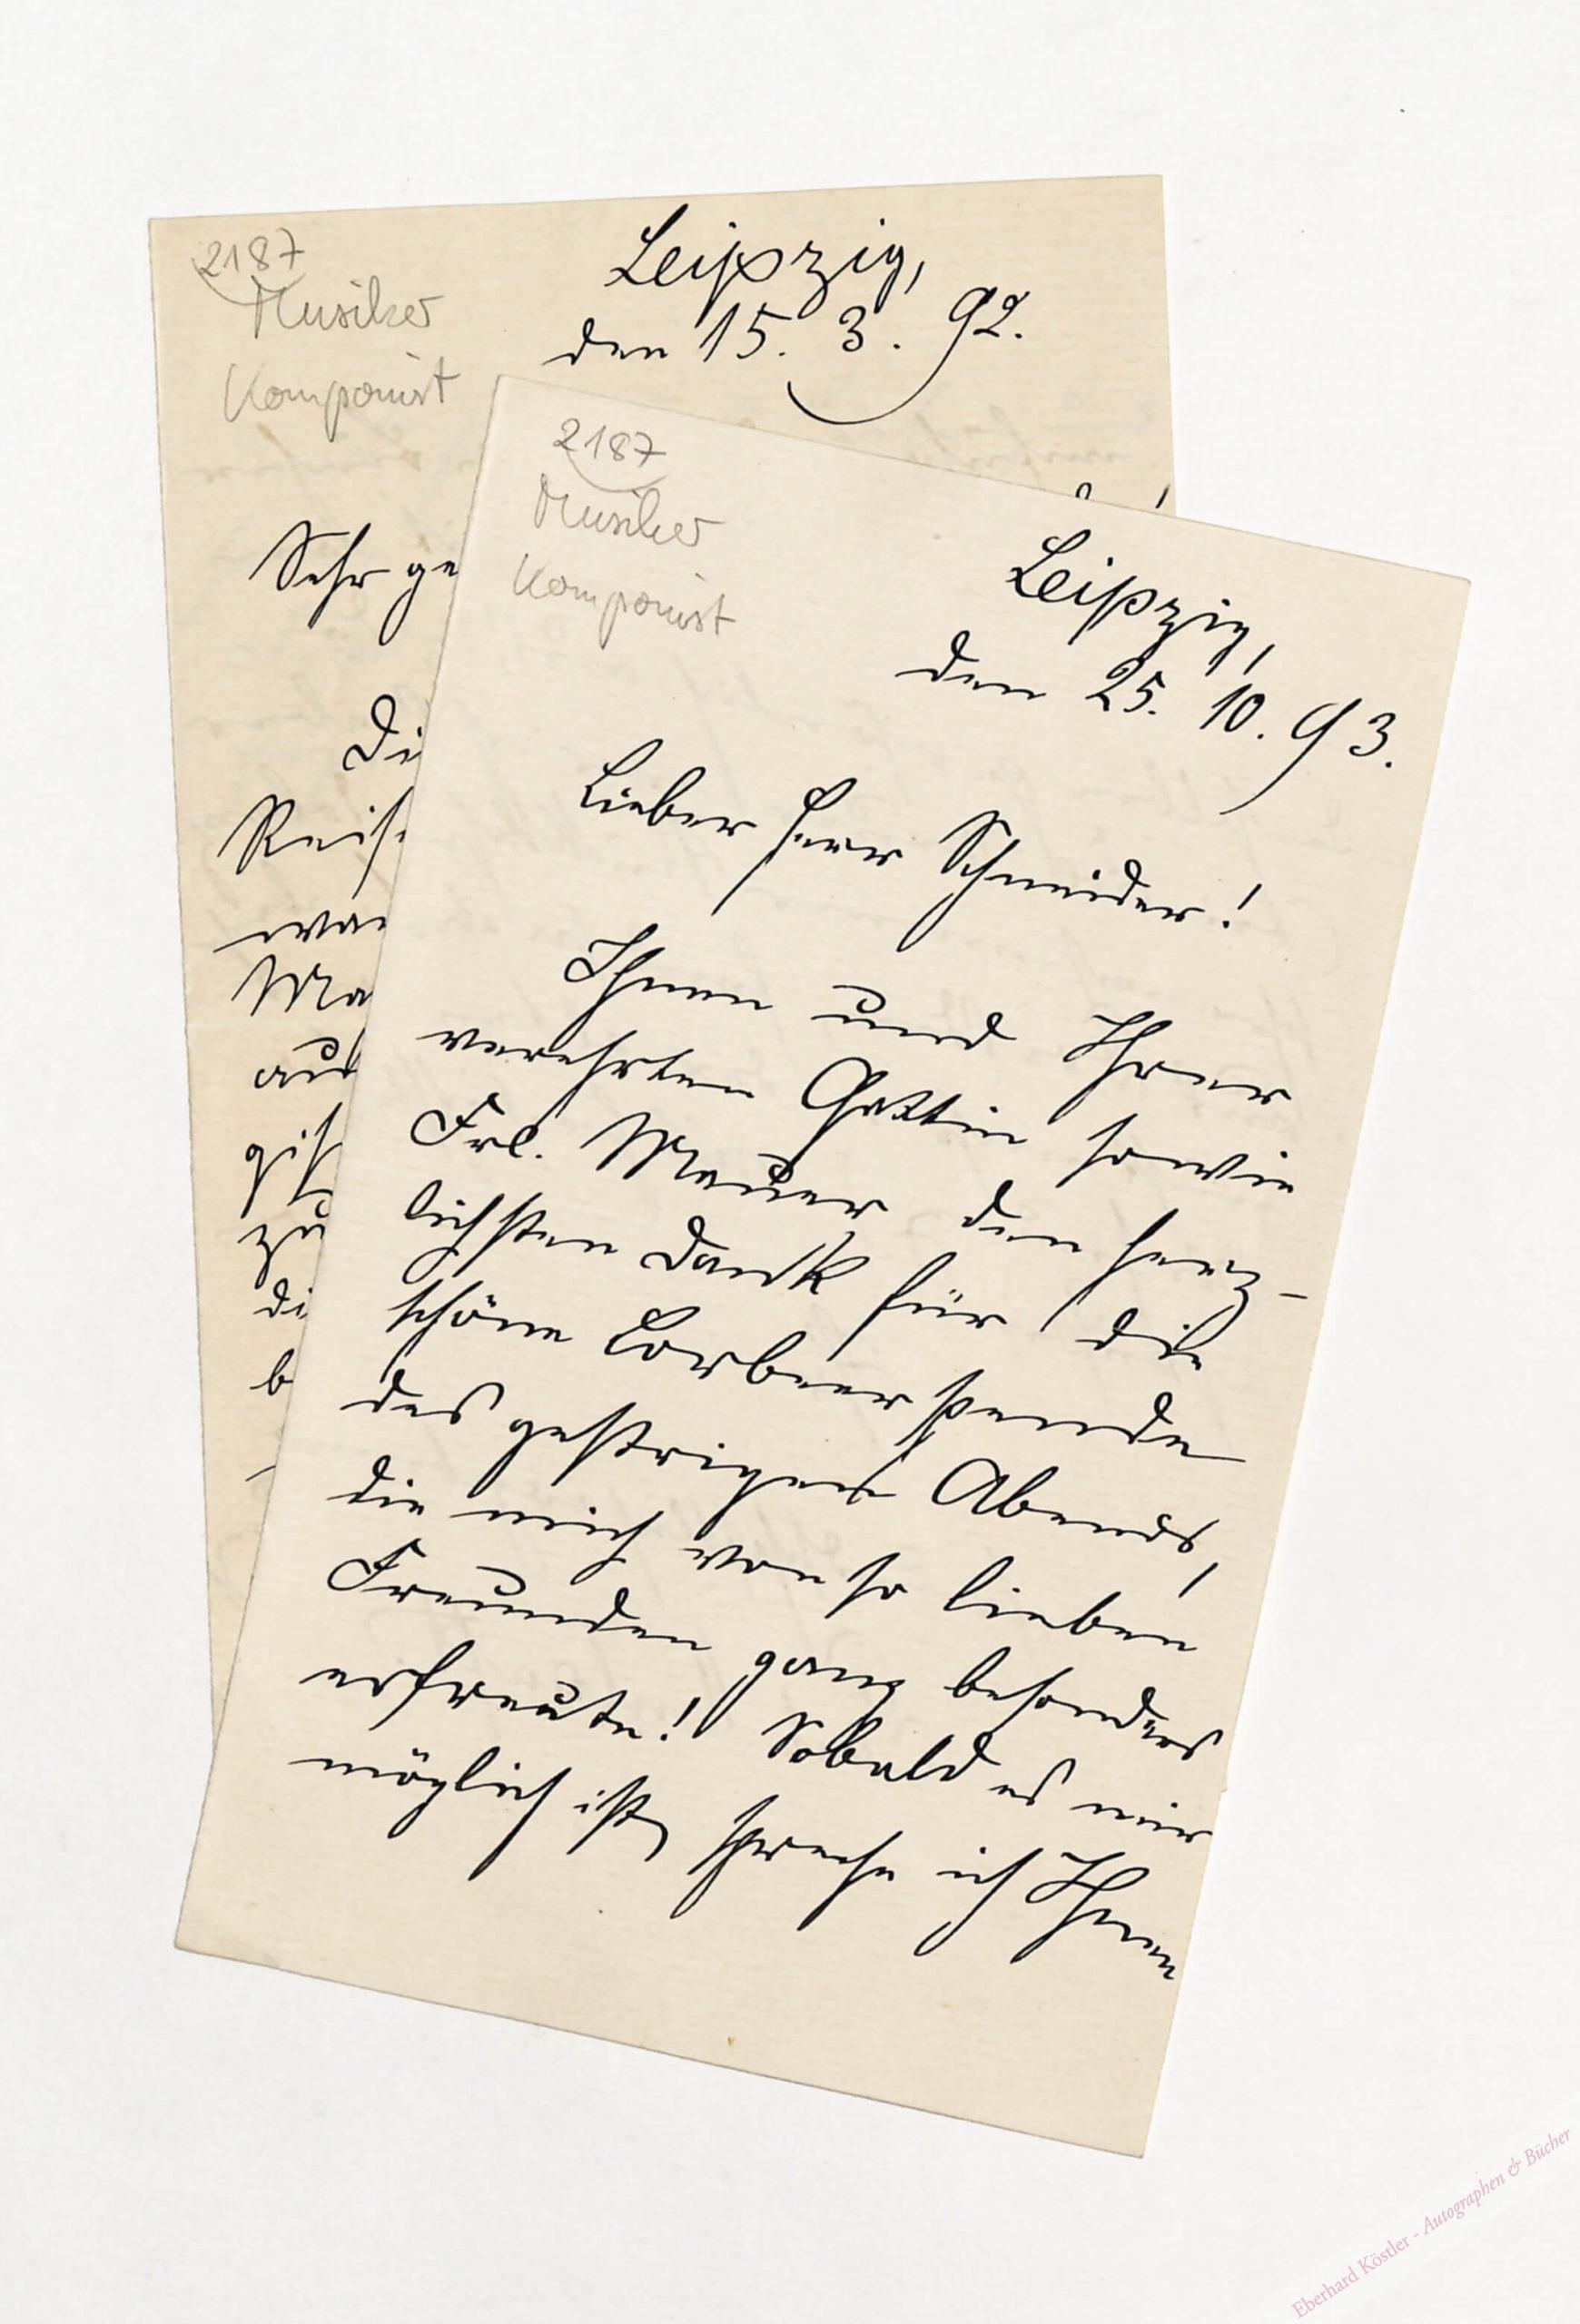 2187
Musiker
Komponist
Leipzig,
den 15. 3. 92.
Sehr ge
Di
Reis
wa
Ma
auf
gif
zu
di
b
2187
Musiker
Komponist
Leipzig,
den 25. 10. 93.
Lieber Herr Schneider!
Ihnen und Ihrer
verehrten Gattin sowie
Frl. Mauer den herz-
lichsten Dank für die
schöne Lorbeerspende
des gestrigen Abends,
die mich von so lieben
Freunden ganz besonders
erfreute! Sobald es mir
möglich ist, spreche ich Ihnen
Eberhard Köstler - Autographen & Bücher